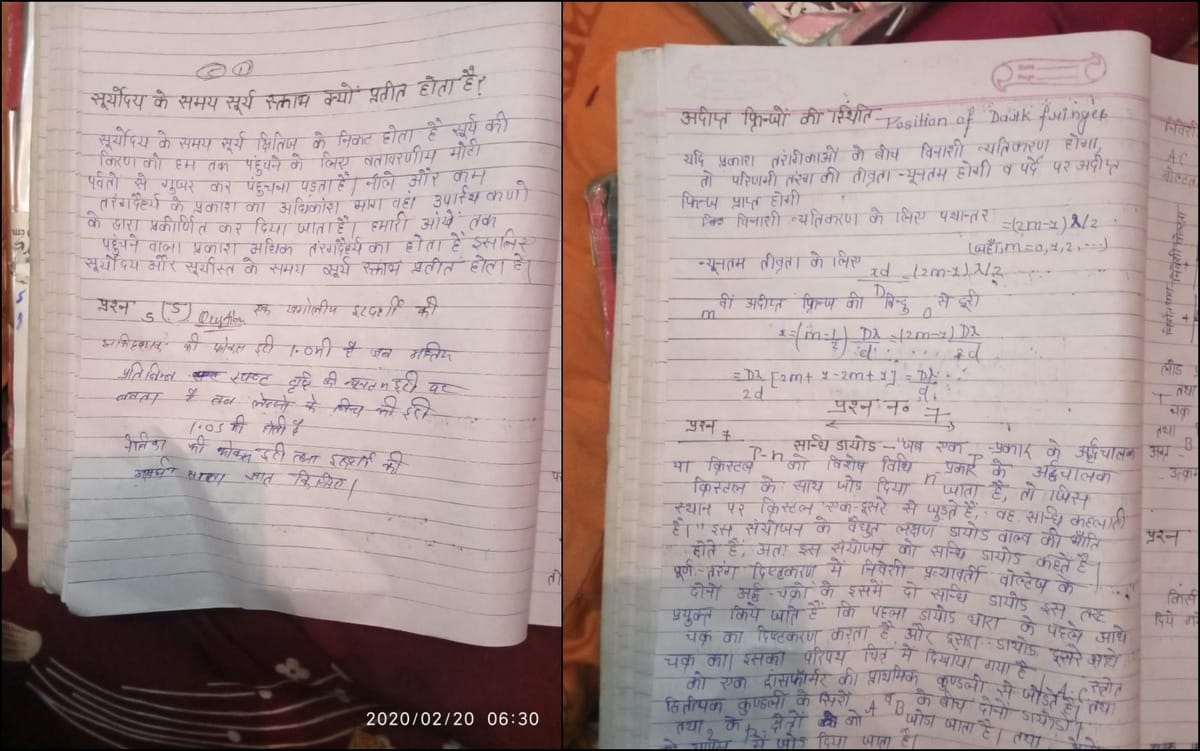 सूर्योदय के समय सूर्य रक्ताभ क्यों प्रतीत होता है?
सूर्योदय के समय सूर्य क्षितिज के निकट होता है सूर्य की
किरण को हम तक पंहुचने के लिए वतावरणीय मोटी
पर्वतो से गुजर कर पहुंचना पड़ता है। नीले और कम
तरंगदैर्ध्य के प्रकाश का अधिकांश भाग वहां उपस्थि कणो
के द्वारा प्रकीर्णित कर दिया जाता है। हमारी आंखें तक
पहुंचने वाला प्रकाश अधिक तरंगदैर्ध्य का होता है इसलिए
सूर्योदय और सूर्यास्त के समय सूर्य रक्ताभ प्रतीत होता है।
प्रश्न 5 (5) Question एक खगोलीय दूरदर्शी की
की फोकस दूरी 1.0मी है जब अन्तिम
प्रतिबिम्ब स्पष्ट दृष्टि की न्यूनतम दूरी पर
बनता है तब लेन्सो के बिच की दूरी
1.05 मी होती है
की फोकस दूरी तथा दूरदर्शी की
क्षमता ज्ञात किजिए।
अदीप्त फ्रिन्जों की स्थिति - Position of Dark fringes
यदि प्रकाश तरंगिकाओं के बीच विनाशी व्यतिकरण होगा,
तो परिणमी तरंग की तीव्रता न्यूनतम होगी व पर्दे पर अदीप्त
फिन्ज प्राप्त होगी
विनाशी व्यतिकरण के लिए पथान्तर = (2m-1) λ/2
(जहाँ, m = 0, 1, 2, ...)
न्यूनतम तीव्रता के लिए
xd/D = (2m-1) λ/2
m वी अदीप्त फ्रिन्ज की बिन्दु 0 से दूरी
x = (m-1/2) Dλ/d = (2m-1) Dλ/2d
= Dλ/2d [2m+1-2m+1] = Dλ/d
प्रश्न न० 7
प्रश्न 7
P-n सान्धि डायोड - "जब एक P-प्रकार के अर्द्धचालक
या क्रिस्टल को विशेष विधि n प्रकार के अर्द्धचालक
क्रिस्टल के साथ जोड दिया जाता है, तो जिस
स्थान पर क्रिस्टल एक-दूसरे से जुडते हैं, वह सान्धि कहलाती
है।" इस संयोजन के वैधुत लक्षण डायोड वाल्व की भाँति
होते है, अतः इस संयोजन को सान्धि डायोड कहते है।
पूर्ण-तरंग दिष्टकरण में निवेशी प्रत्यावर्ती वोल्टेज के
दोनो अर्द्ध-चक्रो के इसमें दो सान्धि डायोड इस तरह
प्रयुक्त किये जाते हैं कि पहला डायोड धारा के पहले आधे
चक्र का दिष्टकरण करता है और दूसरा डायोड दूसरे आधे
चक्र का। इसका परिपथ चित्र में दिखाया गया है। A.C स्त्रोत
को एक ट्रांसफॉर्मर की प्राथमिक कुण्डली से जोडते है। तथा
द्वितीयक कुण्डली के सिरो A व B के बीच दोनों डायोडो
तथा के दोनों को जोडा जाता है। तथा
में जोड दिया जाता है।
2020/02/20 06:30